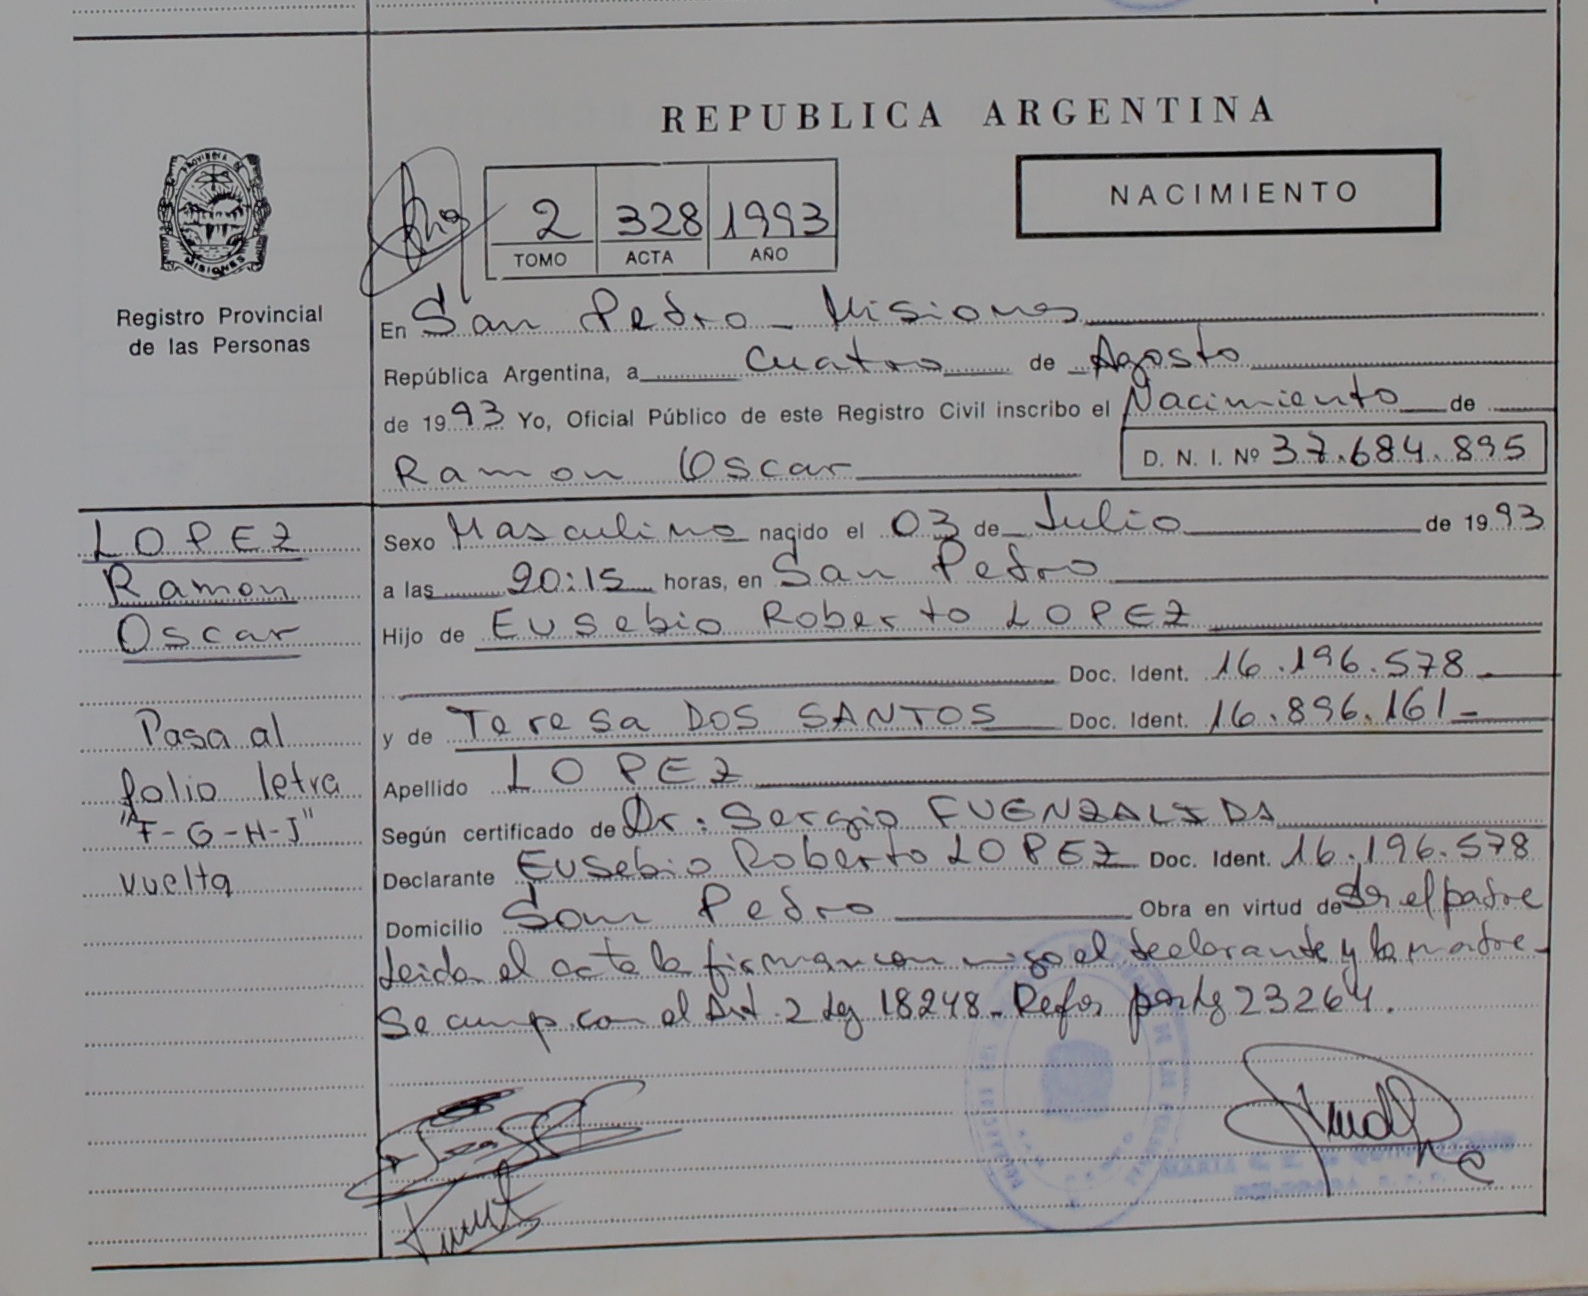 REPUBLICA ARGENTINA
NACIMIENTO
2 328 1993
TOMO ACTA AÑO
PROVINCIA DE
MISIONES
Registro Provincial
de las Personas
En San Pedro - Misiones
República Argentina, a cuatro de Agosto
de 1993 Yo, Oficial Público de este Registro Civil inscribo el Nacimiento de
Ramon Oscar
D. N. I. Nº 37.684.895
LOPEZ
Ramon
Oscar
Pasa al
folio letra
"F-G-H-J"
vuelta
Sexo Masculino nacido el 03 de Julio de 1993
a las 20:15 horas, en San Pedro
Hijo de Eusebio Roberto LOPEZ
Doc. Ident. 16.196.578
y de Teresa DOS SANTOS Doc. Ident. 16.896.161-
Apellido LOPEZ
Según certificado de Dr. Sergio FUENZALIDA
Declarante Eusebio Roberto LOPEZ Doc. Ident. 16.196.578
Domicilio San Pedro Obra en virtud de ser el padre
Leida el acta la firman con migo el declarante y la madre-
Se cump. con el Art. 2 Ley 18248- Refor por Ley 23264.